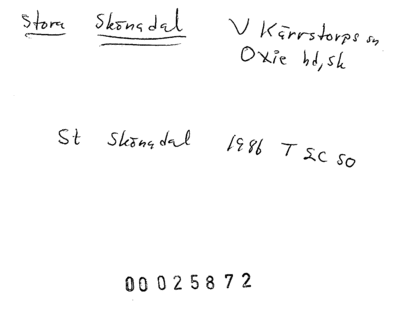 Stora Skönadal V Kärrstorps sn
Oxie hd, sk
St Skönadal 1986 T 2C 50
00025872